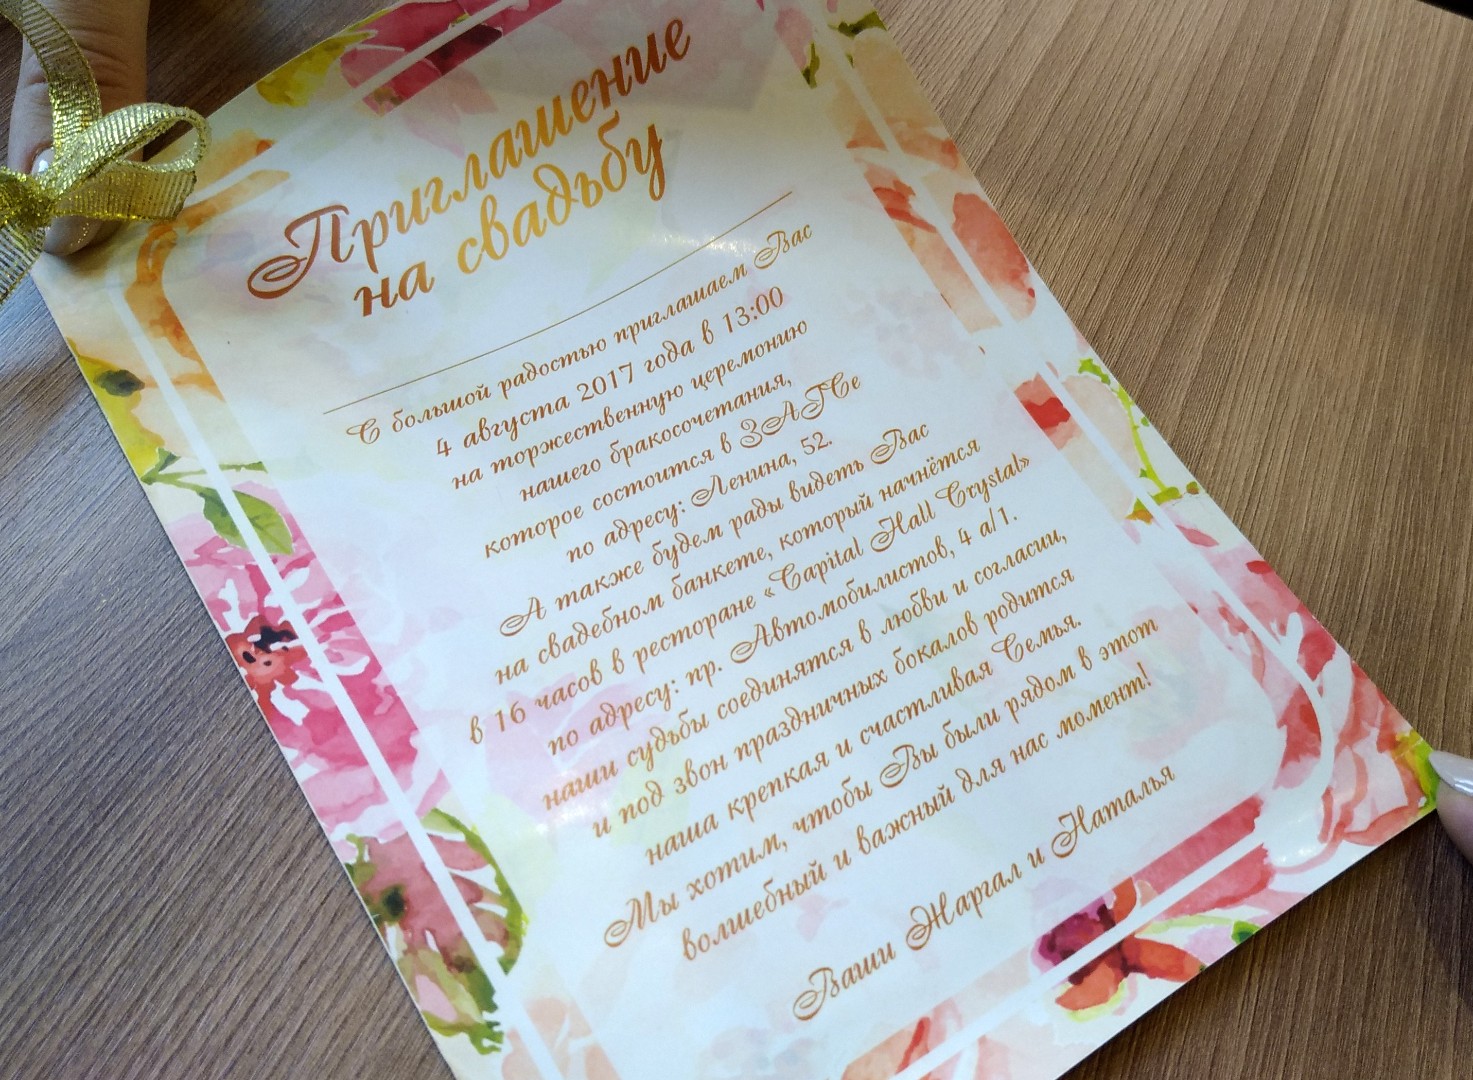 Приглашение
на свадьбу
С большой радостью приглашаем Вас
4 августа 2017 года в 13:00
на торжественную церемонию
нашего бракосочетания,
которое состоится в ЗАГСе
по адресу: Ленина, 52.
А также будем рады видеть Вас
на свадебном банкете, который начнётся
в 16 часов в ресторане «Capital Hall Crystal»
по адресу: пр. Автомобилистов, 4 а/1.
наши судьбы соединятся в любви и согласии,
и под звон праздничных бокалов родится
наша крепкая и счастливая Семья.
Мы хотим, чтобы Вы были рядом в этот
волшебный и важный для нас момент!
Ваши Жаргал и Наталья